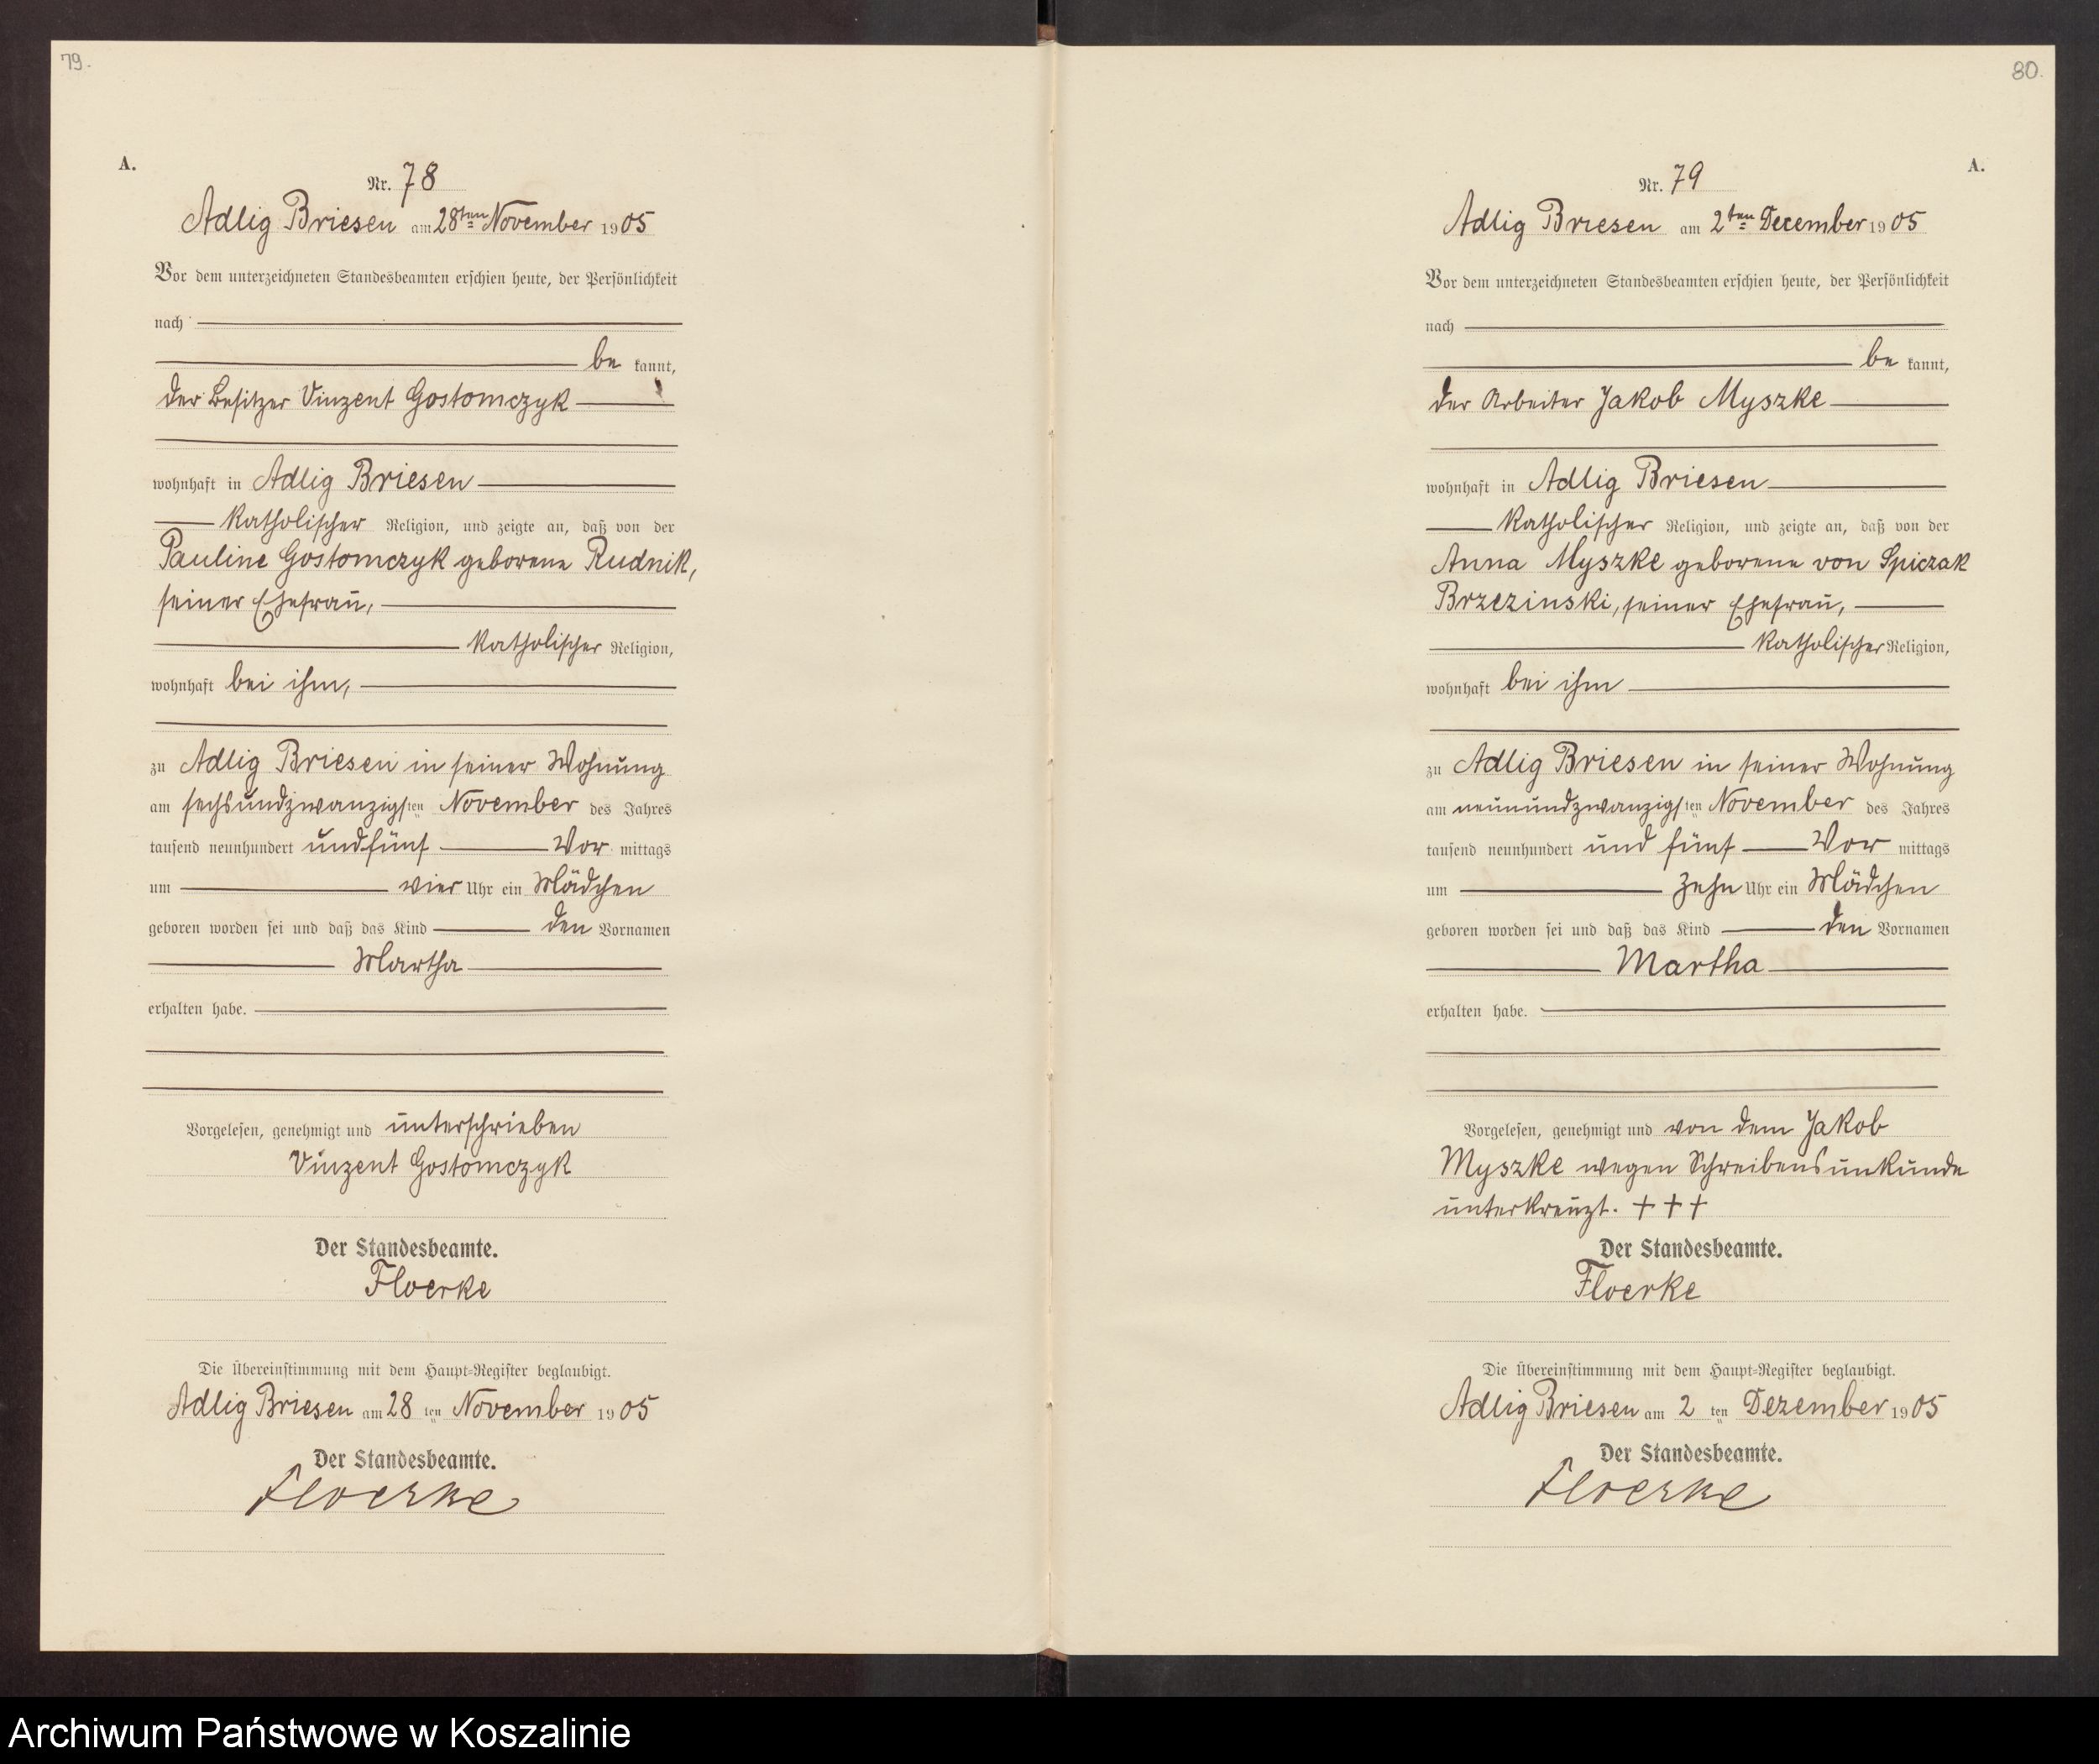 79.
A.
Nr. 78
Adlig Briesen am 28ten November 1905
Vor dem unterzeichneten Standesbeamten erschien heute, der Persönlichkeit
nach
be kannt,
der Besitzer Vinzent Gostomczyk
wohnhaft in Adlig Briesen
katholischer Religion, und zeigte an, daß von der
Pauline Gostomczyk geborene Rudnik,
seiner Ehefrau,
katholischer Religion,
wohnhaft bei ihm,
zu Adlig Briesen in seiner Wohnung
am sechsundzwanzigsten November des Jahres
tausend neunhundert undfünf Vor mittags
um vier Uhr ein Mädchen
geboren worden sei und daß das Kind den Vornamen
Martha
erhalten habe.
Vorgelesen, genehmigt und unterschrieben
Vinzent Gostomczyk
Der Standesbeamte.
Floerke
Die Übereinstimmung mit dem Haupt-Register beglaubigt.
Adlig Briesen am 28 ten November 1905
Der Standesbeamte.
Floerke
80.
A.
Nr. 79
Adlig Briesen am 2ten December 1905
Vor dem unterzeichneten Standesbeamten erschien heute, der Persönlichkeit
nach
be kannt,
der Arbeiter Jakob Myszke
wohnhaft in Adlig Briesen
katholischer Religion, und zeigte an, daß von der
Anna Myszke geborene von Spiczak
Brzezinski, seiner Ehefrau,
katholischer Religion,
wohnhaft bei ihm
zu Adlig Briesen in seiner Wohnung
am neunundzwanzigsten November des Jahres
tausend neunhundert und fünf Vor mittags
um zehn Uhr ein Mädchen
geboren worden sei und daß das Kind den Vornamen
Martha
erhalten habe.
Vorgelesen, genehmigt und von dem Jakob
Myszke wegen Schreibensunkunde
unterkreuzt. +++
Der Standesbeamte.
Floerke
Die Übereinstimmung mit dem Haupt-Register beglaubigt.
Adlig Briesen am 2 ten Dezember 1905
Der Standesbeamte.
Floerke
Archiwum Państwowe w Koszalinie